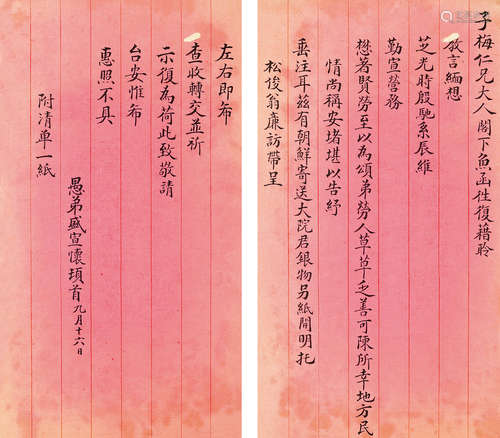 子梅仁兄大人閣下魚函往復藉聆
教言緬想
芝光時殷馳系辰維
勤宣營務
懋著賢勞至以為頌弟勞人草草乏善可陳所幸地方民
情尚稱安堵堪以告紓
垂注耳茲有朝鮮寄送大院君銀物另紙開明托
松俊翁廉訪帶呈
左右即希
查收轉交並祈
示復為荷此致敬請
台安惟希
惠照不具
愚弟盛宣懷頊首九月十六日
附清單一紙